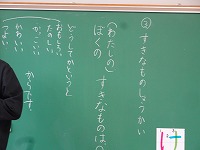 ② すきなものしょうかい
(わたしの)
ぼくの すきなものは(
どうしてかというと
おもしろい
たのしい
かっこいい
かわいい
つよい
からです。